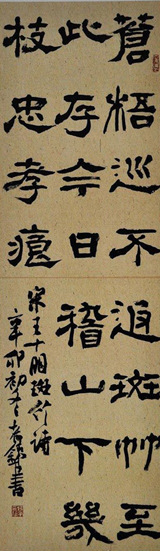 蒼梧巡不返斑竹至
此存今日稽山下幾
枝忠孝痕
宋王十朋斑竹詩
辛卯初
書